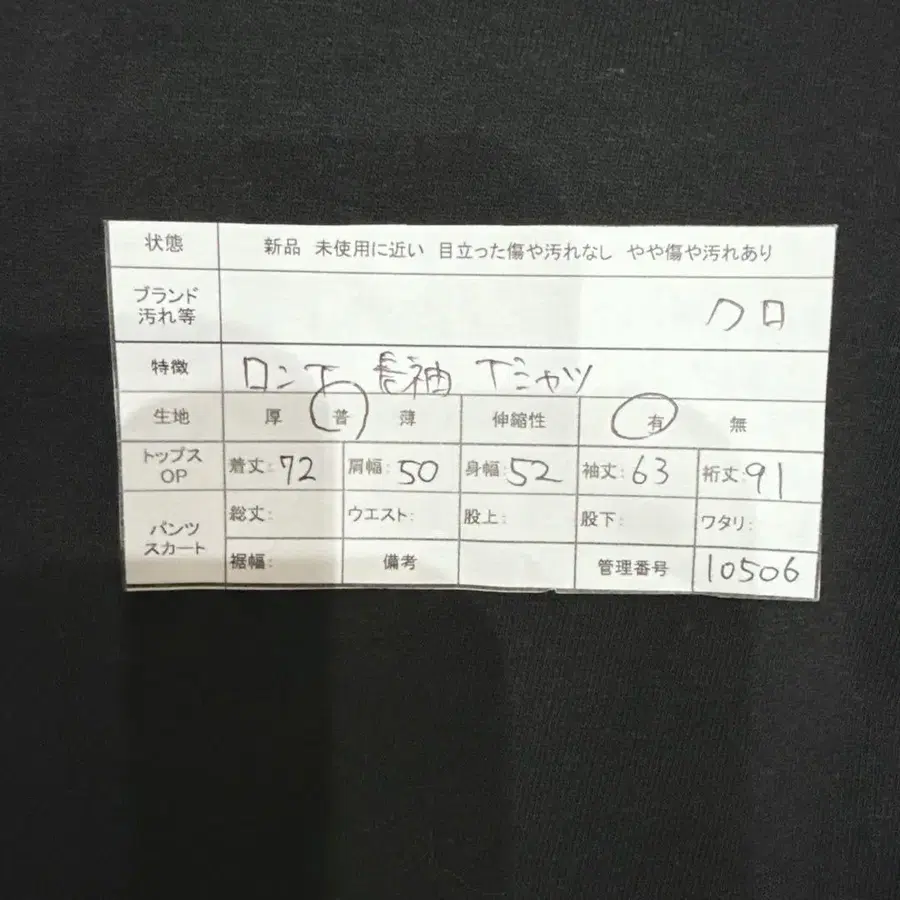 状態 新品 未使用に近い 目立った傷や汚れなし やや傷や汚れあり
ブランド
汚れ等 クロ
特徴 ロンT 長袖 Tシャツ
生地 厚 普 薄 伸縮性 有 無
トップス
OP 着丈:72 肩幅:50 身幅:52 袖丈:63 裄丈:91
パンツ
スカート 総丈: ウエスト: 股上: 股下: ワタリ:
裾幅: 備考 管理番号 10506